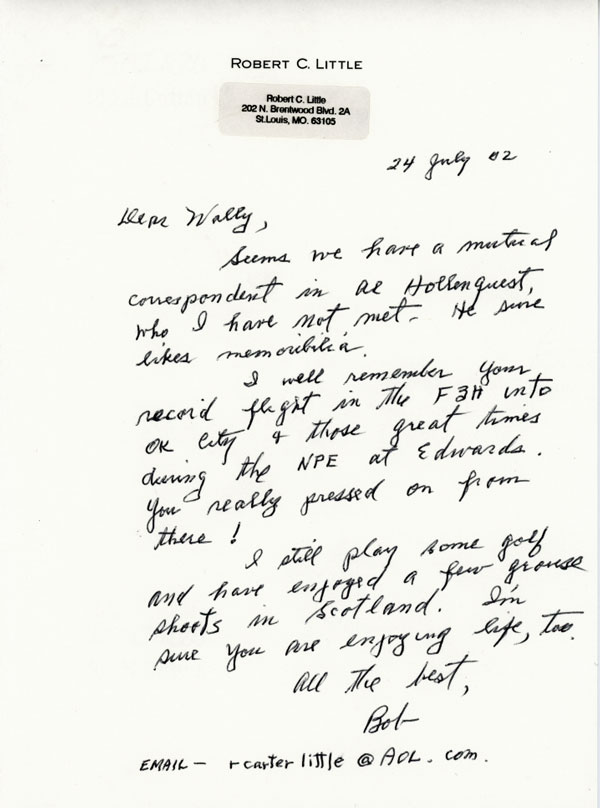 ROBERT C. LITTLE
Robert C. Little
202 N. Brentwood Blvd. 2A
St.Louis, MO. 63105
24 July 02
Dear Wally,
Seems we have a mutual
correspondent in Al Hollenquest,
who I have not met. He sure
likes memoribilia.
I well remember your
record flight in the F3H into
OK City & those great times
during the NPE at Edwards.
You really pressed on from
there!
I still play some golf
and have enjoyed a few grouse
shoots in Scotland. I'm
sure you are enjoying life, too.
All the best,
Bob
EMAIL - rcarterlittle@AOL.com.